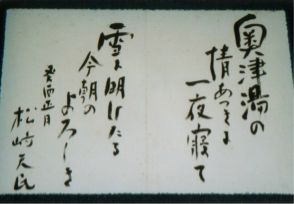 奥津湯の
情あつきに
一夜寝て
雪に明けたる
今朝の
よろしき
癸酉正月
松崎天民